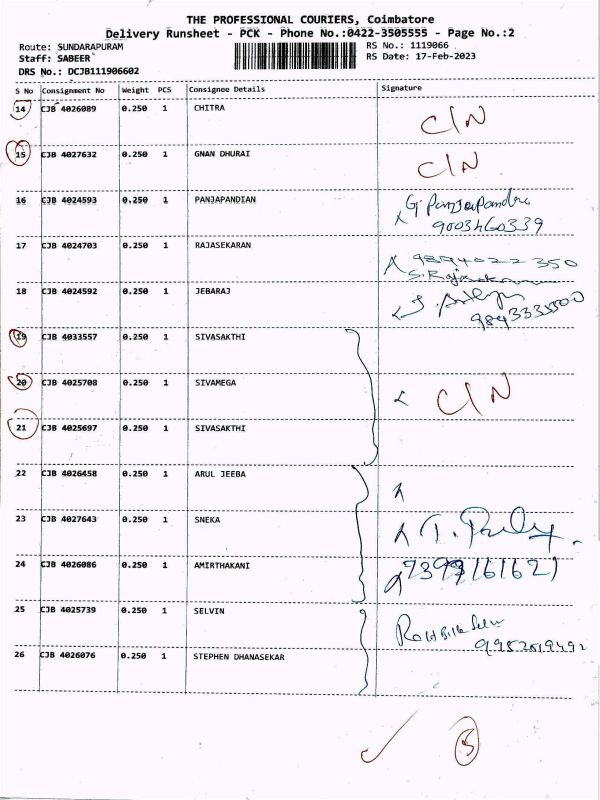 THE PROFESSIONAL COURIERS, Coimbatore
Delivery Runsheet - PCK - Phone No.:0422-3505555 - Page No.:2
Route: SUNDARAPURAM
RS No.: 1119066
Staff: SABEER
RS Date: 17-Feb-2023
DRS No.: DCJB111906602
S No Consignment No Weight PCS Consignee Details Signature
14 CJB 4026089 0.250 1 CHITRA C/N
15 CJB 4027632 0.250 1 GNAN DHURAI C/N
16 CJB 4024593 0.250 1 PANJAPANDIAN G. Panjapandi
9003460339
17 CJB 4024703 0.250 1 RAJASEKARAN 9894022350
18 CJB 4024592 0.250 1 JEBARAJ
19 CJB 4033557 0.250 1 SIVASAKTHI
20 CJB 4025708 0.250 1 SIVAMEGA C/N
21 CJB 4025697 0.250 1 SIVASAKTHI
22 CJB 4026458 0.250 1 ARUL JEEBA
23 CJB 4027643 0.250 1 SNEKA
24 CJB 4026086 0.250 1 AMIRTHAKANI
25 CJB 4025739 0.250 1 SELVIN
26 CJB 4026076 0.250 1 STEPHEN DHANASEKAR